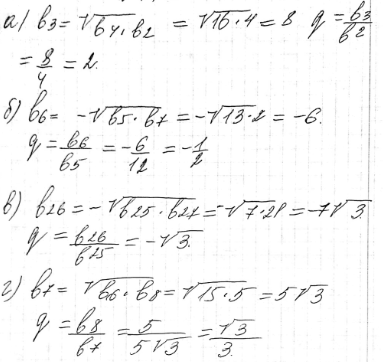 а) b₃ = √b₄·b₂ = √16·4 = 8 q = b₃/b₂
= 8/4 = 2.
б) b₆ = -√b₅·b₇ = -√13·2 = -6.
q = b₆/b₅ = -6/12 = -1/2
в) b₂₆ = -√b₂₅·b₂₇ = -√7·21 = -7√3
q = b₂₆/b₂₅ = -√3.
г) b₇ = √b₆·b₈ = √15·5 = 5√3
q = b₈/b₇ = 5/5√3 = √3/3.